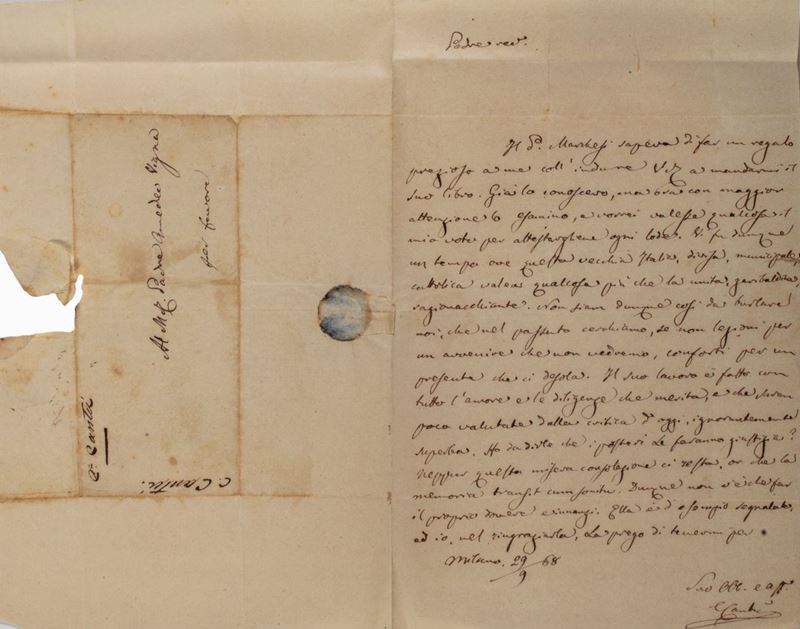 Al M.R. Padre Amedeo Vigna
per favore
C. Cantù
C. Cantù.
Padre rev.
Il P. Marchesi sapeva di far un regalo
prezioso a me coll'indurre V.R. a mandarmi il
suo libro. Già lo conoscevo, ma ora con maggior
attenzione lo esamino, e vorrei valesse qualcosa il
mio voto per attestargliene ogni lode. Vi fu dunque
un tempo ove questa vecchia Italia, divisa, municipale,
cattolica valeva qualcosa più che la unità garibaldina,
ragionacchiante. Non siam dunque così da burlare
noi, che nel passato cerchiamo, se non lezioni per
un avvenire che non vedremo, conforti per un
presente che ci desola. Il suo lavoro è fatto con
tutto l'amore e le diligenze che merita, e che saran
poco valutate dalla critica d'oggi, ignorantemente
superba. Ho da dirle che i posteri Le faranno giustizia?
Neppur questa misera consolazione ci resta, or che la
memoria transit cum sonitu. Dunque non v'è che far
il proprio dovere e innanzi. Ella è d'esempio segnalato,
ed io, nel ringraziarla, La prego di tenermi per
Milano, 29/9 68
Suo obb. e aff.
C Cantù